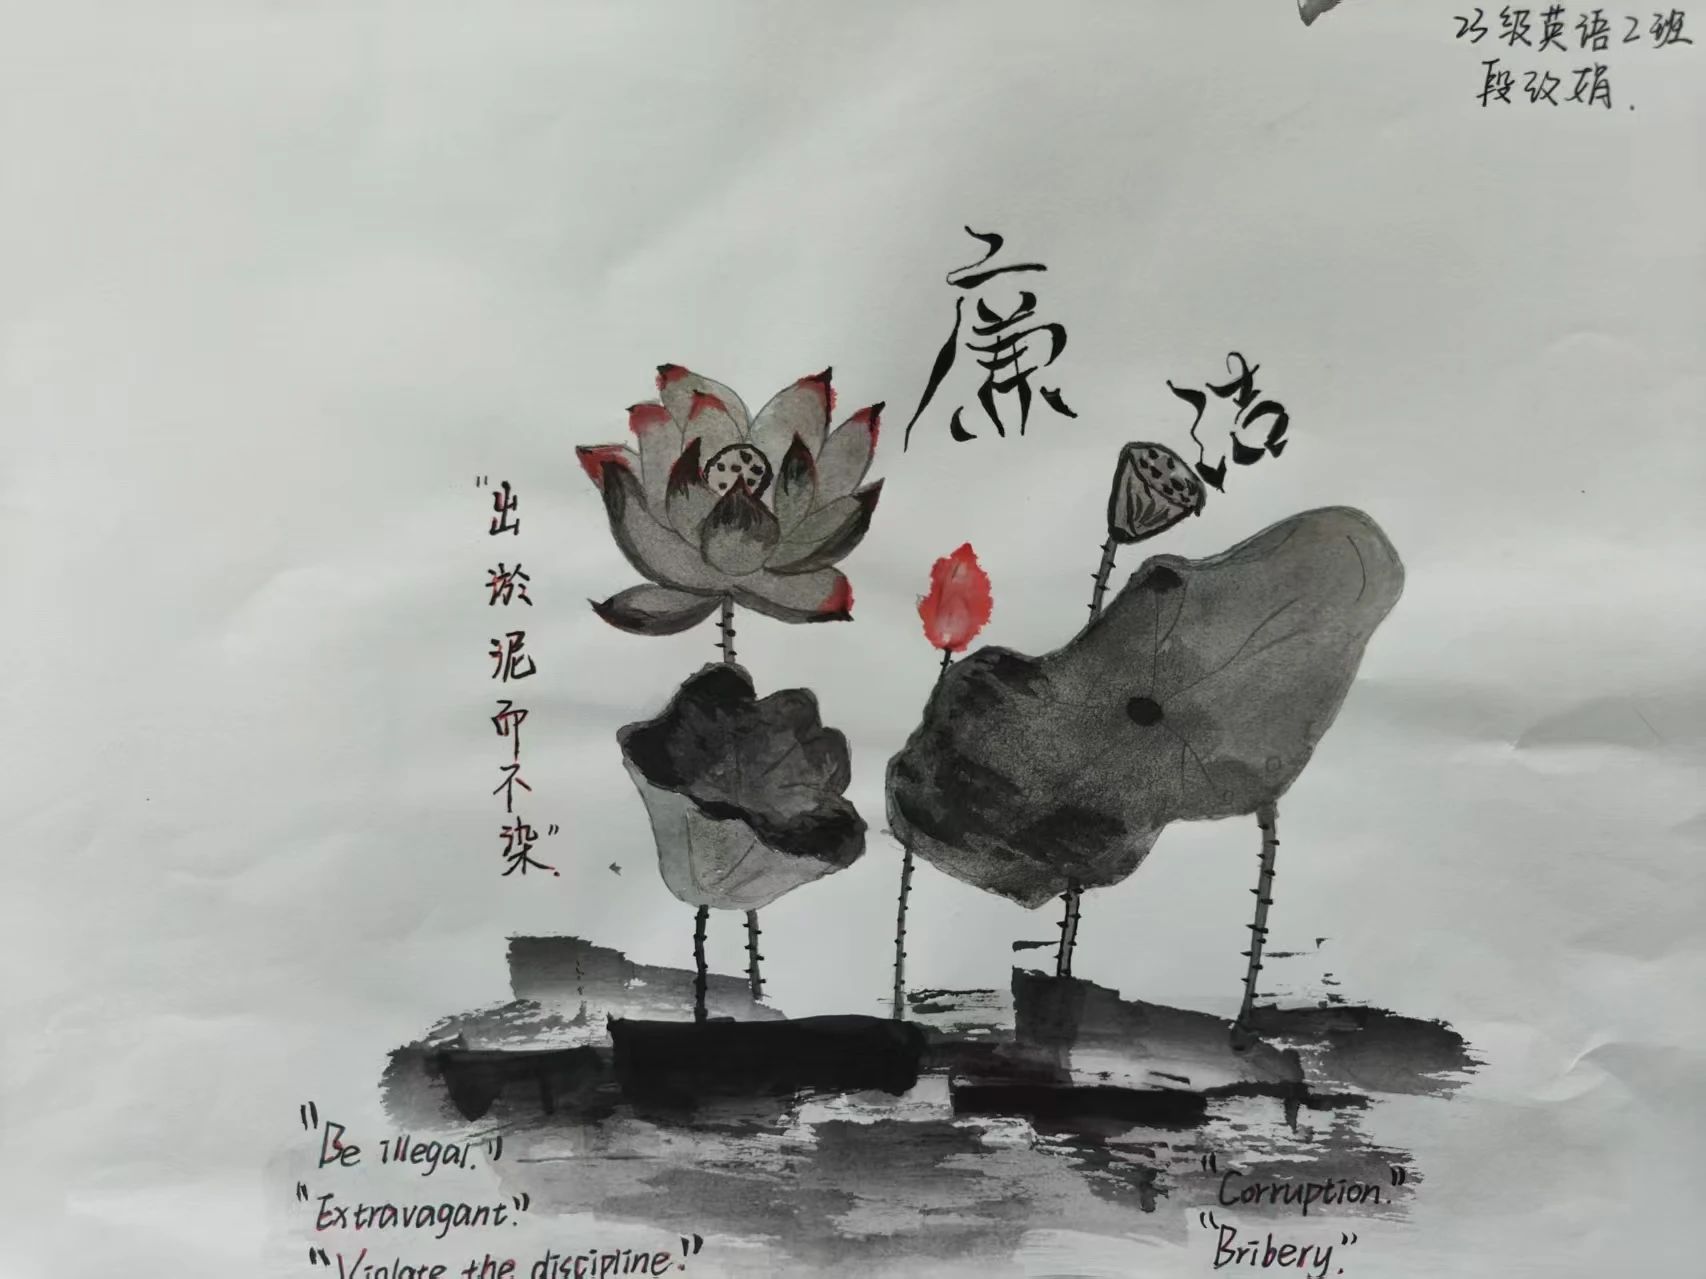 23级英语2班
段改娟.
廉洁
"出淤泥而不染".
"Be illegal."
"Extravagant."
"Violate the discipline."
"Corruption."
"Bribery."